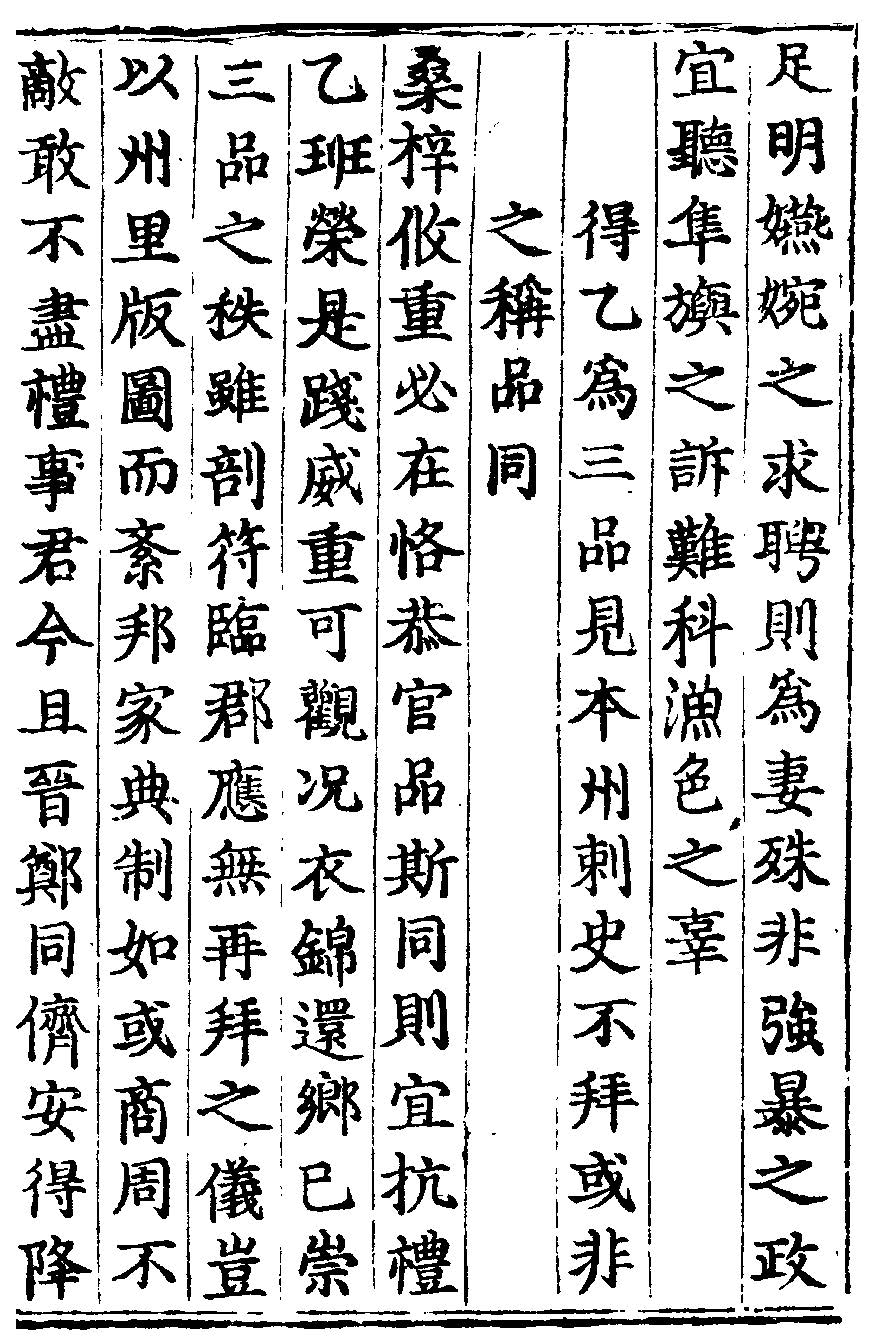 足明嬿婉之求聘則為妻殊非強暴之政
宜聽隼旟之訴難科漁色之辜
得乙為三品見本州刺史不拜或非
之稱品同
桑梓攸重必在恪恭官品斯同則宜抗禮
乙班榮是踐威重可觀况衣錦還鄉已崇
三品之秩雖剖符臨郡應無再拜之儀豈
以州里版圖而紊邦家典制如或商周不
敵敢不盡禮事君今且晉鄭同儕安得降